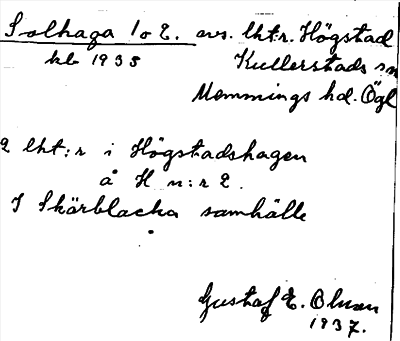 Solhaga 1 o 2. avs. lht.r. Högstad
kb 1935 Kullerstads sn
Memmings hd. Ögl
2 lht:r i Högstadshagen
å H n:r 2.
I Skärblacka samhälle
Gustaf E. Olsson
1937.